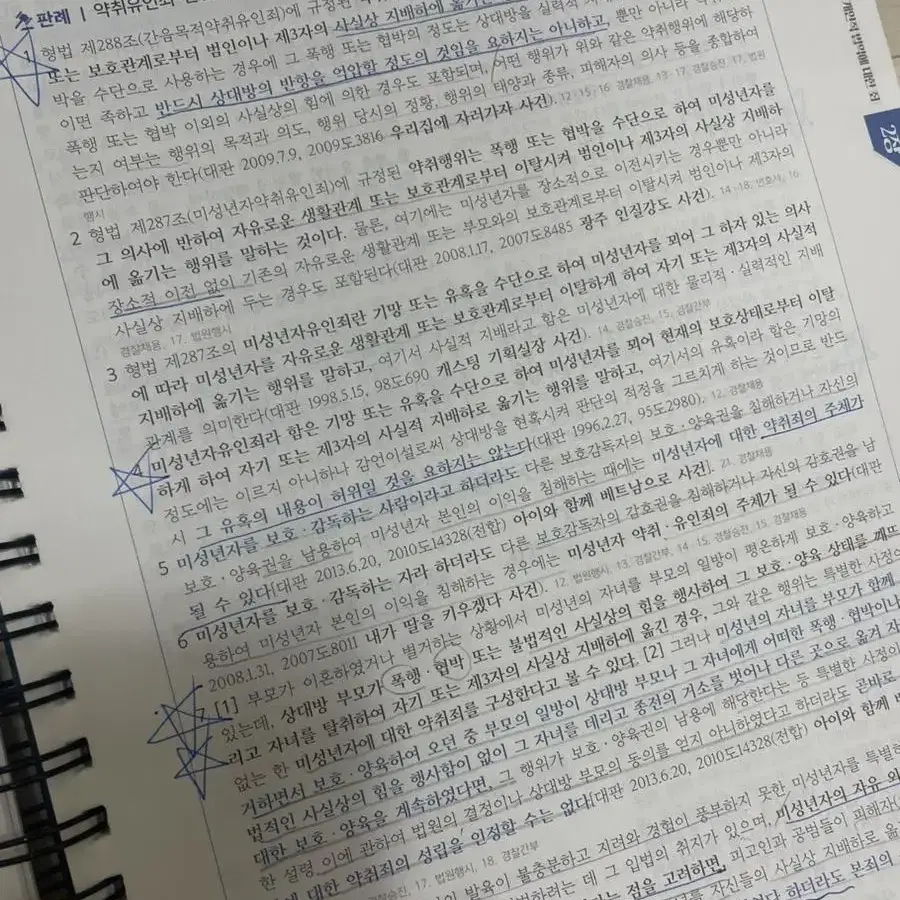 판례 | 약취유인죄
형법 제288조(간음목적약취유인죄)에 규정된
또는 보호관계로부터 범인이나 제3자의 사실상 지배하에
박을 수단으로 사용하는 경우에 그 폭행 또는 협박의 정도는 상대방을 실력적
이면 족하고 반드시 상대방의 반항을 억압할 정도의 것임을 요하지는 아니하고, 뿐만 아니라
폭행 또는 협박 이외의 사실상의 힘에 의한 경우도 포함되며, 어떤 행위가 위와 같은 약취행위에 해당하
는지 여부는 행위의 목적과 의도, 행위 당시의 정황, 행위의 태양과 종류, 피해자의 의사 등을 종합하여
판단하여야 한다(대판 2009.7.9, 2009도3816 우리집에 자러가자 사건). 12·15·16 경찰채용, 13·17 경찰승진, 17. 법원
행시
2 형법 제287조(미성년자약취유인죄)에 규정된 약취행위는 폭행 또는 협박을 수단으로 하여 미성년자를
그 의사에 반하여 자유로운 생활관계 또는 보호관계로부터 이탈시켜 범인이나 제3자의 사실상 지배하
에 옮기는 행위를 말하는 것이다. 물론, 여기에는 미성년자를 장소적으로 이전시키는 경우뿐만 아니라
장소적 이전 없이 기존의 자유로운 생활관계 또는 부모와의 보호관계로부터 이탈시켜 범인이나 제3자의
사실상 지배하에 두는 경우도 포함된다(대판 2008.1.17, 2007도8485 광주 인질강도 사건). 14·18. 변호사, 16
경찰채용, 17. 법원행시
3 형법 제287조의 미성년자유인죄란 기망 또는 유혹을 수단으로 하여 미성년자를 꾀어 그 하자 있는 의사
에 따라 미성년자를 자유로운 생활관계 또는 보호관계로부터 이탈하게 하여 자기 또는 제3자의 사실적
지배하에 옮기는 행위를 말하고, 여기서 사실적 지배라고 함은 미성년자에 대한 물리적·실력적인 지배
관계를 의미한다(대판 1998.5.15, 98도690 캐스팅 기획실장 사건). 14. 경찰승진, 15. 경찰간부
4 미성년자유인죄라 함은 기망 또는 유혹을 수단으로 하여 미성년자를 꾀어 현재의 보호상태로부터 이탈
하게 하여 자기 또는 제3자의 사실적 지배하로 옮기는 행위를 말하고, 여기서의 유혹이라 함은 기망의
정도에는 이르지 아니하나 감언이설로써 상대방을 현혹시켜 판단의 적정을 그르치게 하는 것이므로 반드
시 그 유혹의 내용이 허위일 것을 요하지는 않는다(대판 1996.2.27, 95도2980). 12. 경찰채용
5 미성년자를 보호·감독하는 사람이라고 하더라도 다른 보호감독자의 보호·양육권을 침해하거나 자신의
보호·양육권을 남용하여 미성년자 본인의 이익을 침해하는 때에는 미성년자에 대한 약취죄의 주체가
될 수 있다(대판 2013.6.20, 2010도14328(전합) 아이와 함께 베트남으로 사건). 21. 경찰채용
6 미성년자를 보호·감독하는 자라 하더라도 다른 보호감독자의 감호권을 침해하거나 자신의 감호권을 남
용하여 미성년자 본인의 이익을 침해하는 경우에는 미성년자 약취·유인죄의 주체가 될 수 있다(대판
2008.1.31, 2007도8011 내가 딸을 키우겠다 사건). 12. 법원행시, 13. 경찰간부, 14·15. 경찰승진, 15. 경찰채용
[1] 부모가 이혼하였거나 별거하는 상황에서 미성년의 자녀를 부모의 일방이 평온하게 보호·양육하고
있는데, 상대방 부모가 폭행·협박 또는 불법적인 사실상의 힘을 행사하여 그 보호·양육 상태를 깨뜨
리고 자녀를 탈취하여 자기 또는 제3자의 사실상 지배하에 옮긴 경우, 그와 같은 행위는 특별한 사정이
없는 한 미성년자에 대한 약취죄를 구성한다고 볼 수 있다. [2] 그러나 미성년의 자녀를 부모가 함께
거하면서 보호·양육하여 오던 중 부모의 일방이 상대방 부모나 그 자녀에게 어떠한 폭행·협박이나
법적인 사실상의 힘을 행사함이 없이 그 자녀를 데리고 종전의 거소를 벗어나 다른 곳으로 옮겨 자
대한 보호·양육을 계속하였다면, 그 행위가 보호·양육권의 남용에 해당한다는 등 특별한 사정이
한 설령 이에 관하여 법원의 결정이나 상대방 부모의 동의를 얻지 아니하였다고 하더라도 곧바로
에 대한 약취죄의 성립을 인정할 수는 없다(대판 2013.6.20, 2010도14328(전합) 아이와 함께
경찰승진, 17. 법원행시, 18. 경찰간부
발육이 불충분하고 지려와 경험이 풍부하지 못한 미성년자를 특별히
데 그 입법의 취지가 있으며, 미성년자의 자유 외
는 점을 고려하면, 피고인과 공범들이 피해자
를 자신들의 사실상 지배하로
하더라도 본죄의
개인적 법익에 대한 죄
2장